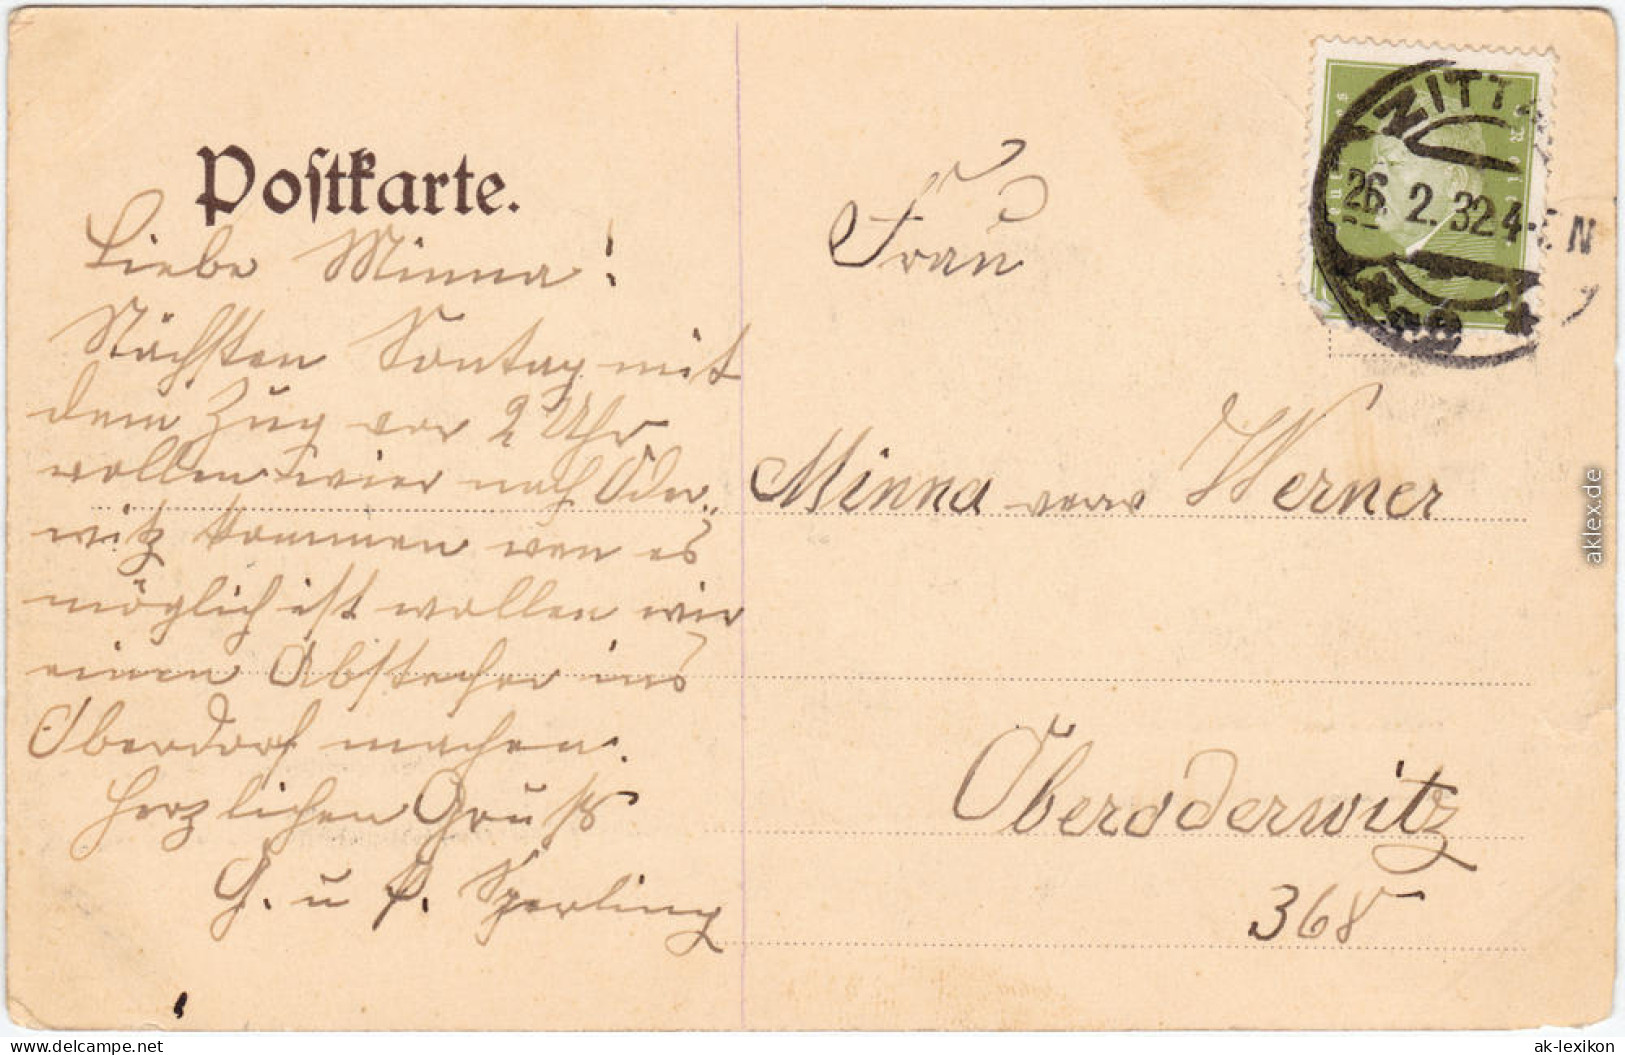 Postkarte.
Liebe Minna!
Nächsten Sontag mit
dem Zug vor 2 Uhr
wollen wier nach Oder-
witz kommen wen es
möglich ist wollen wir
einen Abstecher ins
Oberdorf machen.
Herzlichen Gruß
G. u. P. Sperling
ZITTA
26. 2. 32 4-5 N
Frau
Minna verw Werner
Oberoderwitz
368
aklex.de
www.delcampe.net
ak-lexikon